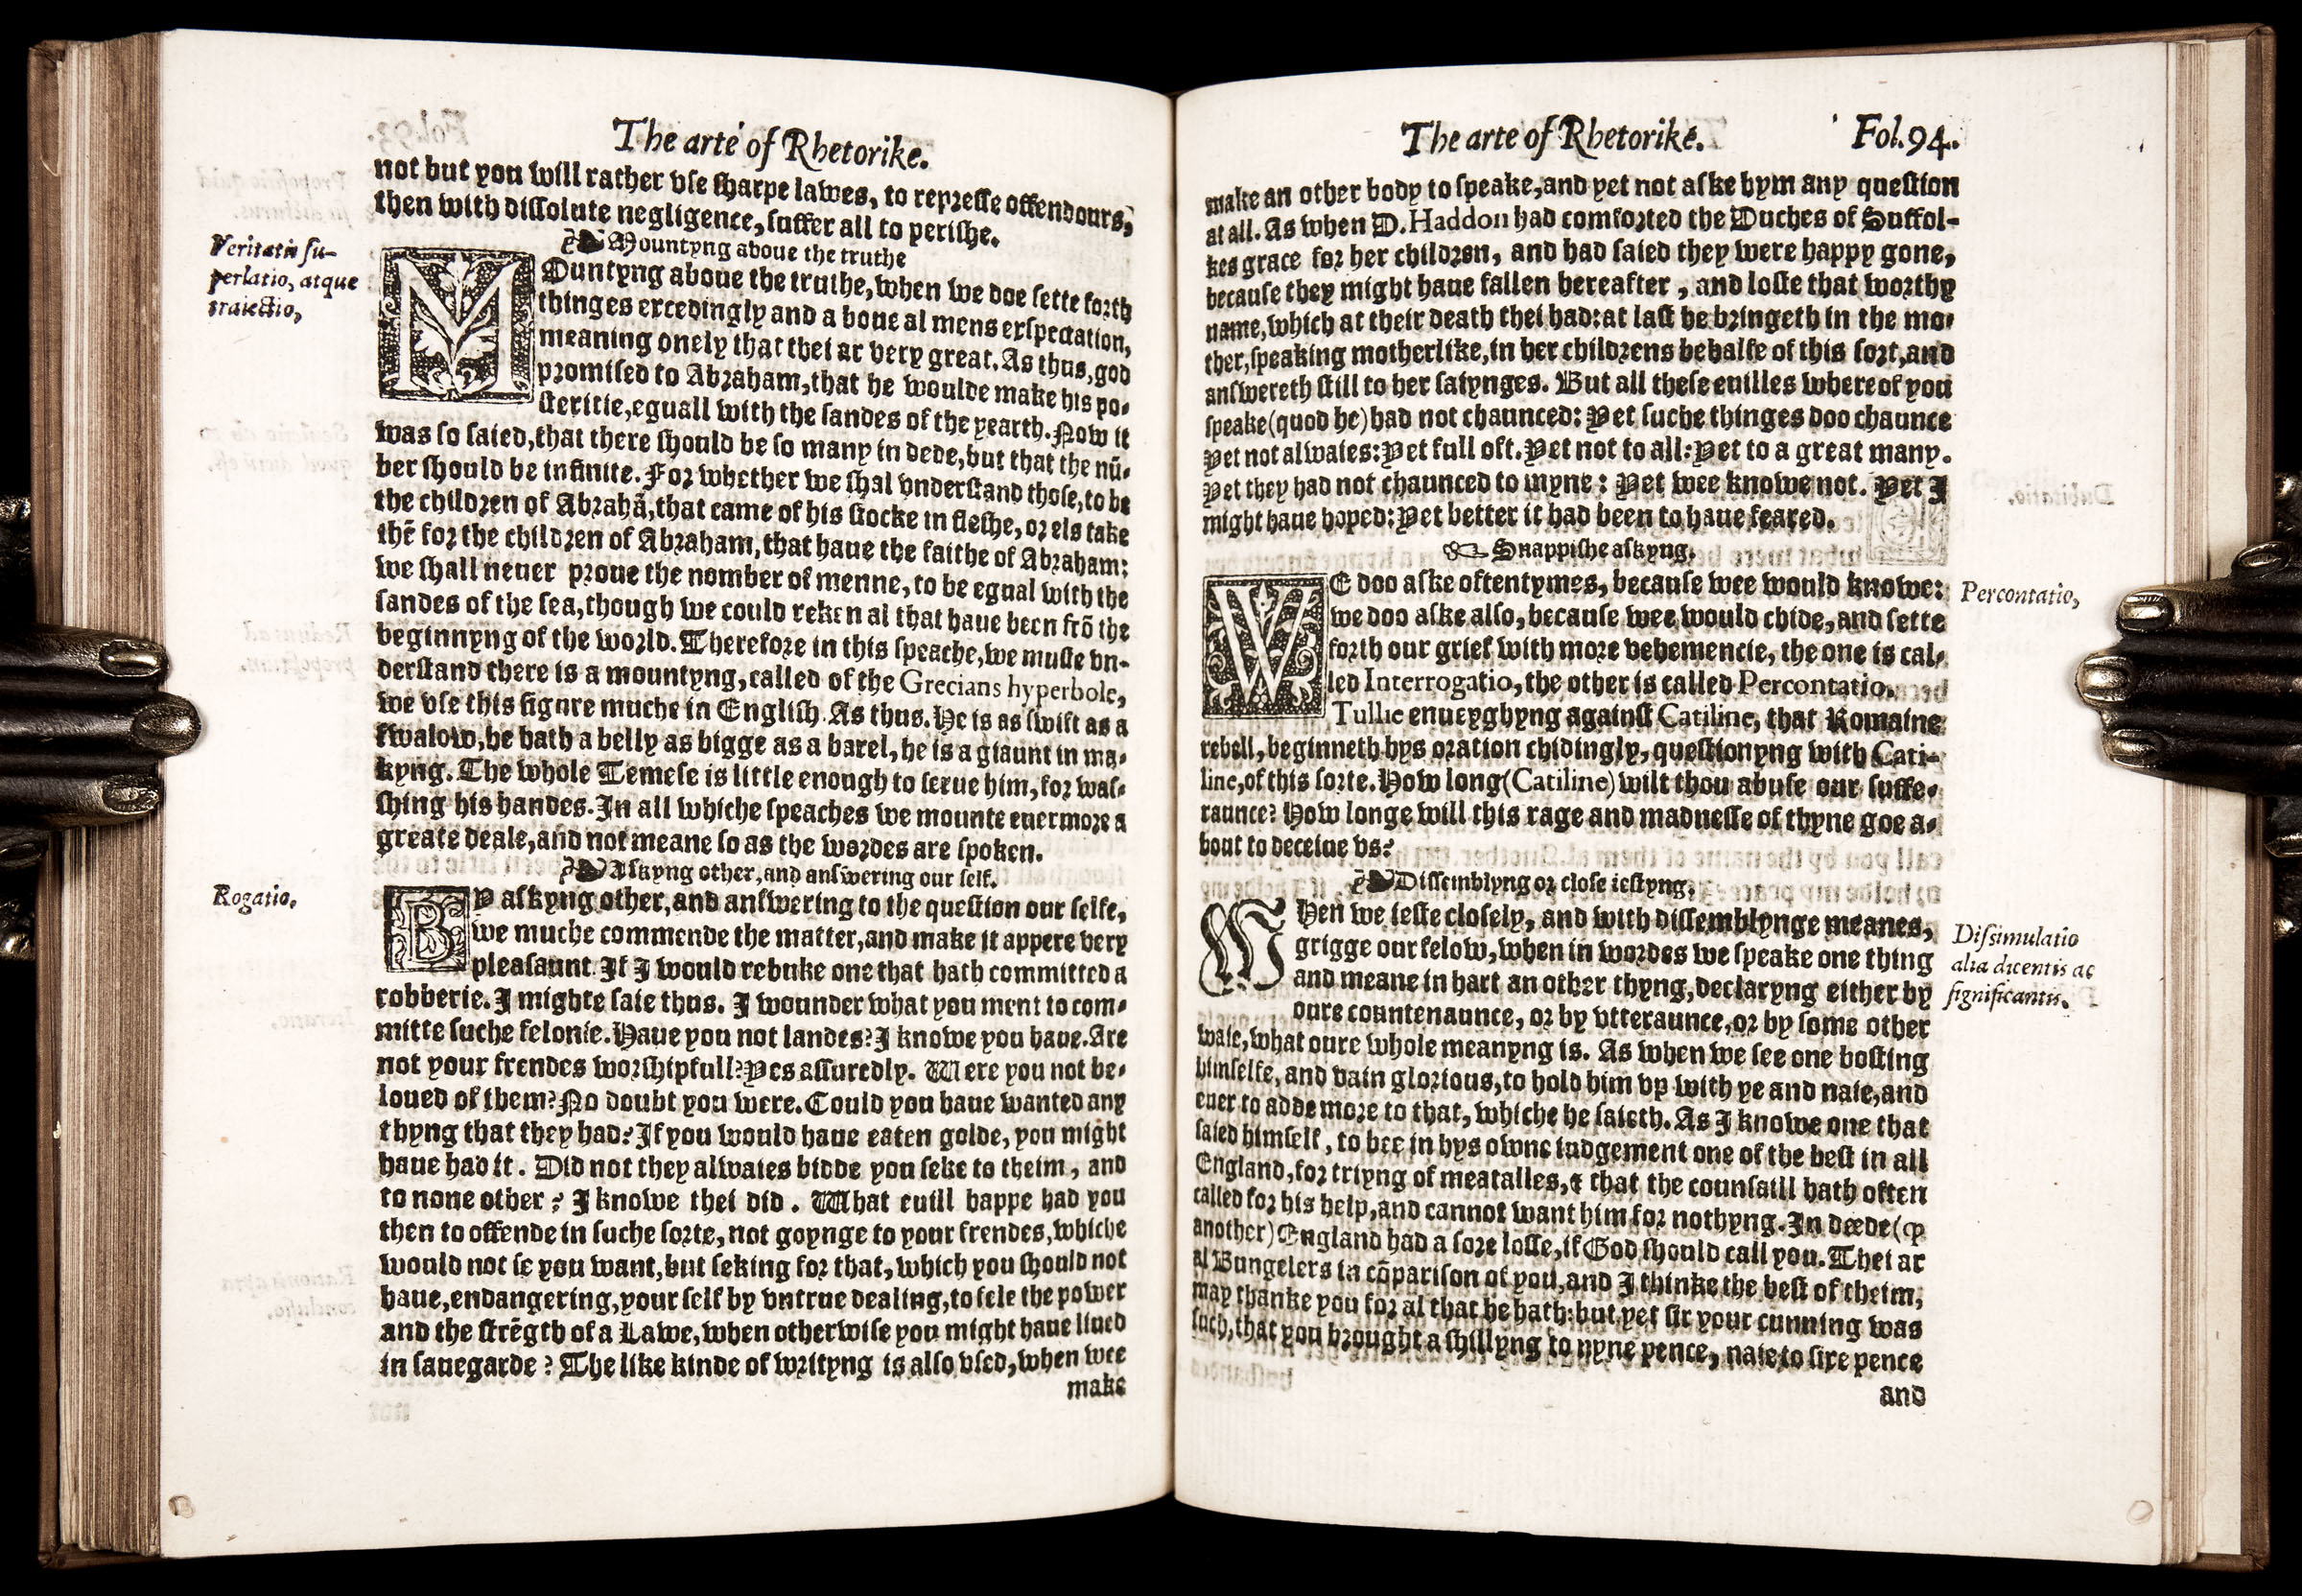 The arte of Rhetorike.
not but you will rather vſe ſharpe lawes, to repreſſe offendours,
then with diſſolute negligence, ſuffer all to periſhe.
Mountyng aboue the truthe
Veritatis ſu-
perlatio, atque
traiectio,
MOuntyng aboue the truthe, when we doe ſette forth
thinges excedingly and a boue al mens exſpectation,
meaning onely that thei ar very great. As thus, god
promiſed to Abraham, that he woulde make his po-
ſteritie, eguall with the ſandes of the yearth. Now it
was ſo ſaied, that there ſhould be ſo many in dede, but that the nũ-
ber ſhould be infinite. For whether we ſhal vnderſtand thoſe, to be
the children of Abrahã, that came of his ſtocke in fleſhe, or els take
thẽ for the children of Abraham, that haue the faithe of Abraham:
we ſhall neuer proue the nomber of menne, to be egual with the
ſandes of the ſea, though we could reken al that haue been frõ the
beginnyng of the world. Therefore in this ſpeache, we muſte vn-
derſtand there is a mountyng, called of the Grecians hyperbole,
we vſe this figure muche in Engliſh. As thus. He is as ſwift as a
ſwalow, he hath a belly as bigge as a barel, he is a giaunt in ma-
kyng. The whole Temeſe is little enough to ſerue him, for waſ-
ſhing his handes. In all whiche ſpeaches we mounte euermore a
greate deale, and not meane ſo as the wordes are ſpoken.
Aſkyng other, and anſwering our ſelf.
Rogatio.
BY aſkyng other, and anſwering to the queſtion our ſelfe,
we muche commende the matter, and make it appere very
pleaſaunt. If I would rebuke one that hath committed a
robberie. I mighte ſaie thus. I wounder what you ment to com-
mitte ſuche felonie. Haue you not landes? I knowe you haue. Are
not your frendes worſhipfull? Yes aſſuredly. Were you not be-
loued of them? No doubt you were. Could you haue wanted any
thyng that they had? If you would haue eaten golde, you might
haue had it. Did not they alwaies bidde you ſeke to theim, and
to none other? I knowe thei did. What euill happe had you
then to offende in ſuche ſorte, not goynge to your frendes, whiche
would not ſe you want, but ſeking for that, which you ſhould not
haue, endangering, your ſelf by vntrue dealing, to fele the power
and the ſtrẽgth of a Lawe, when otherwiſe you might haue liued
in ſauegarde? The like kinde of writyng is alſo vſed, when wee
make
The arte of Rhetorike. Fol.94.
make an other body to ſpeake, and yet not aſke hym any queſtion
at all. As when D. Haddon had comforted the Duches of Suffol-
kes grace for her children, and had ſaied they were happy gone,
becauſe they might haue fallen hereafter, and loſte that worthy
name, which at their death thei had: at laſt he bringeth in the mo-
ther, ſpeaking motherlike, in her childrens behalfe of this ſort, and
anſwereth ſtill to her ſaiynges. But all theſe euilles whereof you
ſpeake (quod he) had not chaunced: Yet ſuche thinges doo chaunce
Yet not alwaies: Yet full oft. Yet not to all: Yet to a great many.
Yet they had not chaunced to myne: Yet wee knowe not. Yet I
might haue hoped: Yet better it had been to haue feared.
Snappiſhe aſkyng.
WE doo aſke oftentymes, becauſe wee would knowe:
Percontatio,
we doo aſke alſo, becauſe wee would chide, and ſette
forth our grief with more vehemencie, the one is cal-
led Interrogatio, the other is called Percontatio.
Tullie enueyghyng againſt Catiline, that Romaine
rebell, beginneth hys oration chidingly, queſtionyng with Cati-
line, of this ſorte. How long (Catiline) wilt thou abuſe our ſuffe-
raunce? How longe will this rage and madneſſe of thyne goe a-
bout to deceiue vs?
Diſſemblyng or cloſe ieſtyng.
WHen we ieſte cloſely, and with diſſemblynge meanes,
Diſsimulatio
alia dicentis ac
ſignificantis.
grigge our felow, when in wordes we ſpeake one thing
and meane in hart an other thyng, declaryng either by
oure countenaunce, or by vtteraunce, or by ſome other
waie, what oure whole meanyng is. As when we ſee one boſting
himſelfe, and vain glorious, to hold him vp with ye and naie, and
euer to adde more to that, whiche he ſaieth. As I knowe one that
ſaied himſelf, to bee in hys owne iudgement one of the beſt in all
England, for triyng of meatalles, & that the counſaill hath often
called for his help, and cannot want him for nothyng. In dæde (ꝙ
another) England had a ſore loſſe, if God ſhould call you. Thei ar
al Bungelers in cõpariſon of you, and I thinke the beſt of theim,
may thanke you for al that he hath: but yet ſir your cunning was
ſuch, that you brought a ſhillyng to nyne pence, naie to ſixe pence
and